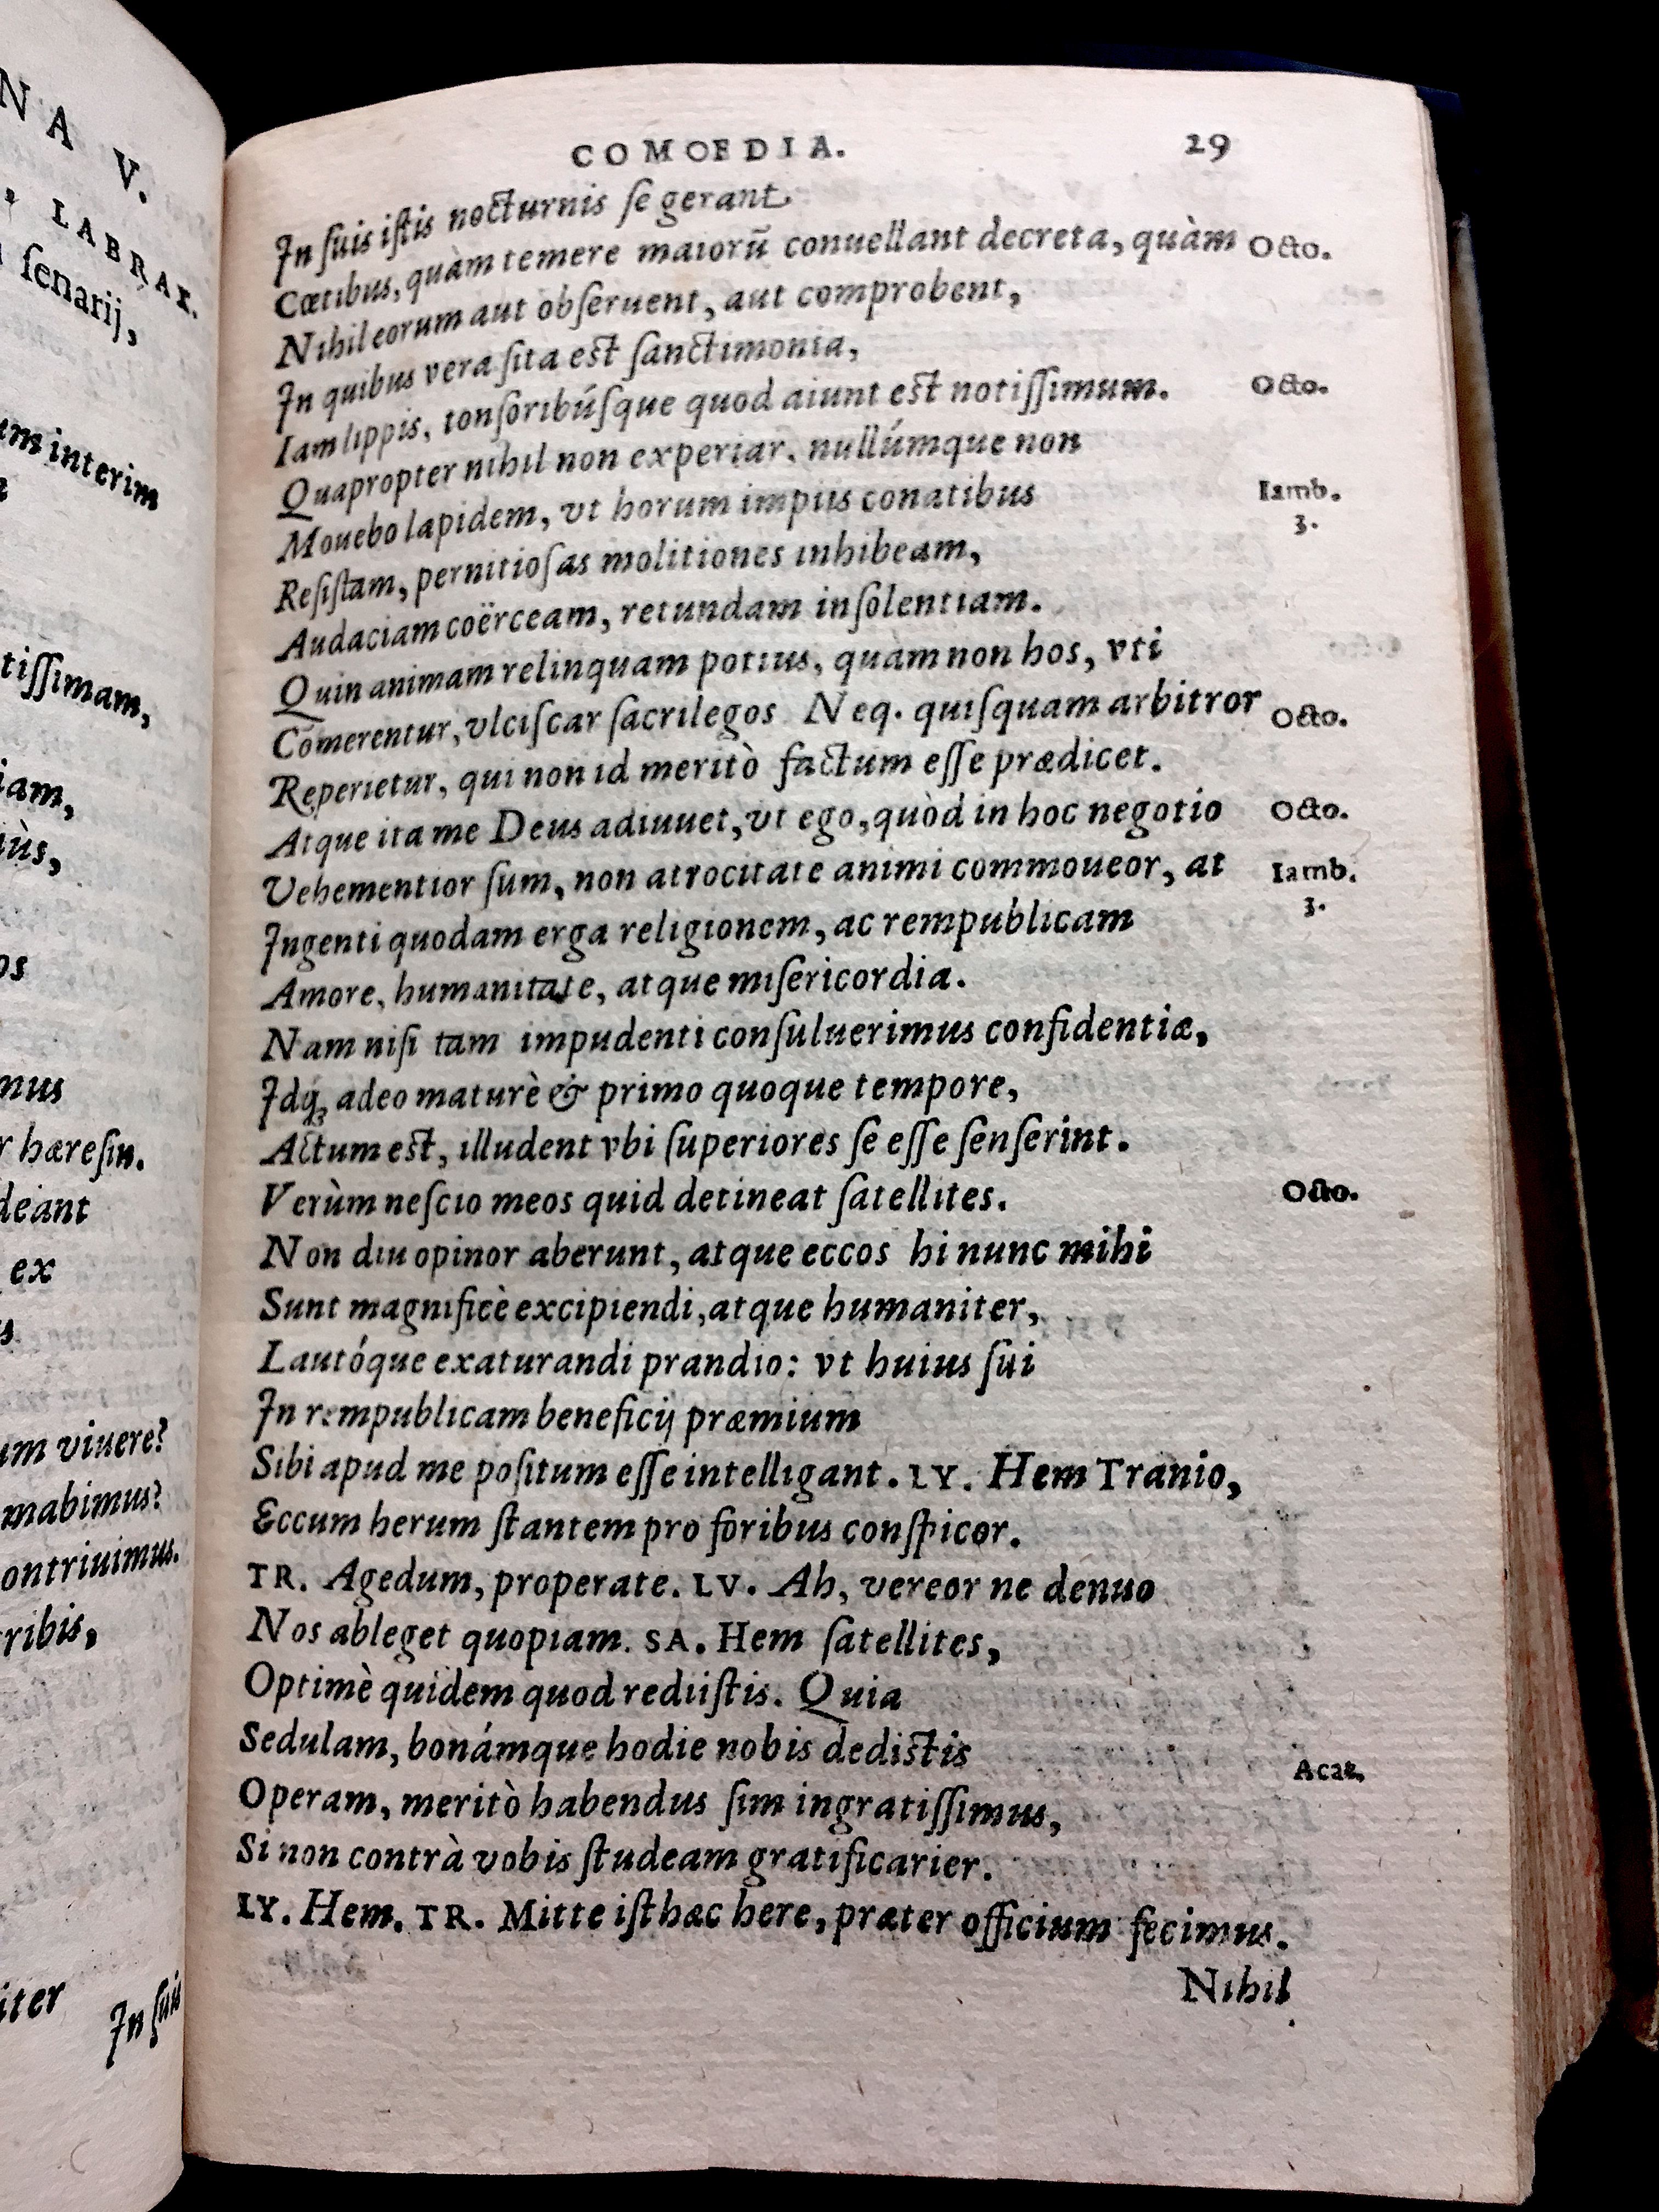 NA V.
, LABRAX.
senarij,
um interim
tissimam,
iam,
iùs,
os
mus
r hæresin.
deant
ex
s.
um viuere?
mabimus?
ontriuimus.
ribis,
iter
In suis
COMOEDIA. 29
In ſuis iſtis nocturnis ſe gerant
Cœtibus, quàm temere maiorũ conuellant decreta, quàm Octo.
Nihil eorum aut obſeruent, aut comprobent,
In quibus vera ſita est ſanctimonia,
Iam lippis, tonſoribúſque quod aiunt est notiſſimum. Octo.
Quapropter nihil non experiar, nullúmque non
Mouebo lapidem, vt horum impiis conatibus Iamb. 3.
Reſiſtam, pernitioſas molitiones inhibeam,
Audaciam coërceam, retundam inſolentiam.
Quin animam relinquam potius, quam non hos, vti
Comerentur, vlciſcar ſacrilegos Neq. quiſquam arbitror Octo.
Reperietur, qui non id meritò factum eſſe prædicet.
Atque ita me Deus adiuuet, vt ego, quòd in hoc negotio Octo.
Vehementior ſum, non atrocitate animi commoueor, at Iamb. 3.
Ingenti quodam erga religionem, ac rempublicam
Amore, humanitate, atque miſericordia.
Nam niſi tam impudenti conſuluerimus confidentiæ,
Idq; adeo maturè & primo quoque tempore,
Actum est, illudent vbi ſuperiores ſe eſſe ſenſerint.
Verùm neſcio meos quid detineat ſatellites. Octo.
Non diu opinor aberunt, atque eccos hi nunc mihi
Sunt magnificè excipiendi, atque humaniter,
Lautóque exaturandi prandio: vt huius ſui
In rempublicam beneficij præmium
Sibi apud me poſitum eſſe intelligant. LY. Hem Tranio,
Eccum herum ſtantem pro foribus conſpicor.
TR. Agedum, properate. LV. Ah, vereor ne denuo
Nos ableget quopiam. SA. Hem ſatellites,
Optimè quidem quod rediiſtis. Quia
Sedulam, bonámque hodie nobis dedistis
Operam, meritò habendus ſim ingratiſſimus, Acat.
Si non contrà vobis ſtudeam gratificarier.
LY. Hem. TR. Mitte iſthæc here, præter officium fecimus.
Nihil